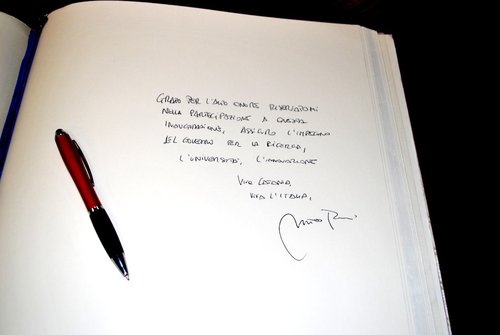 GRATO PER L'ALTO ONORE RISERVATOMI
NELLA PARTECIPAZIONE A QUESTA
INAUGURAZIONE, ASSICURO L'IMPEGNO
DEL GOVERNO PER LA RICERCA,
L'UNIVERSITÀ, L'INNOVAZIONE
VIVA CATANIA,
VIVA L'ITALIA,